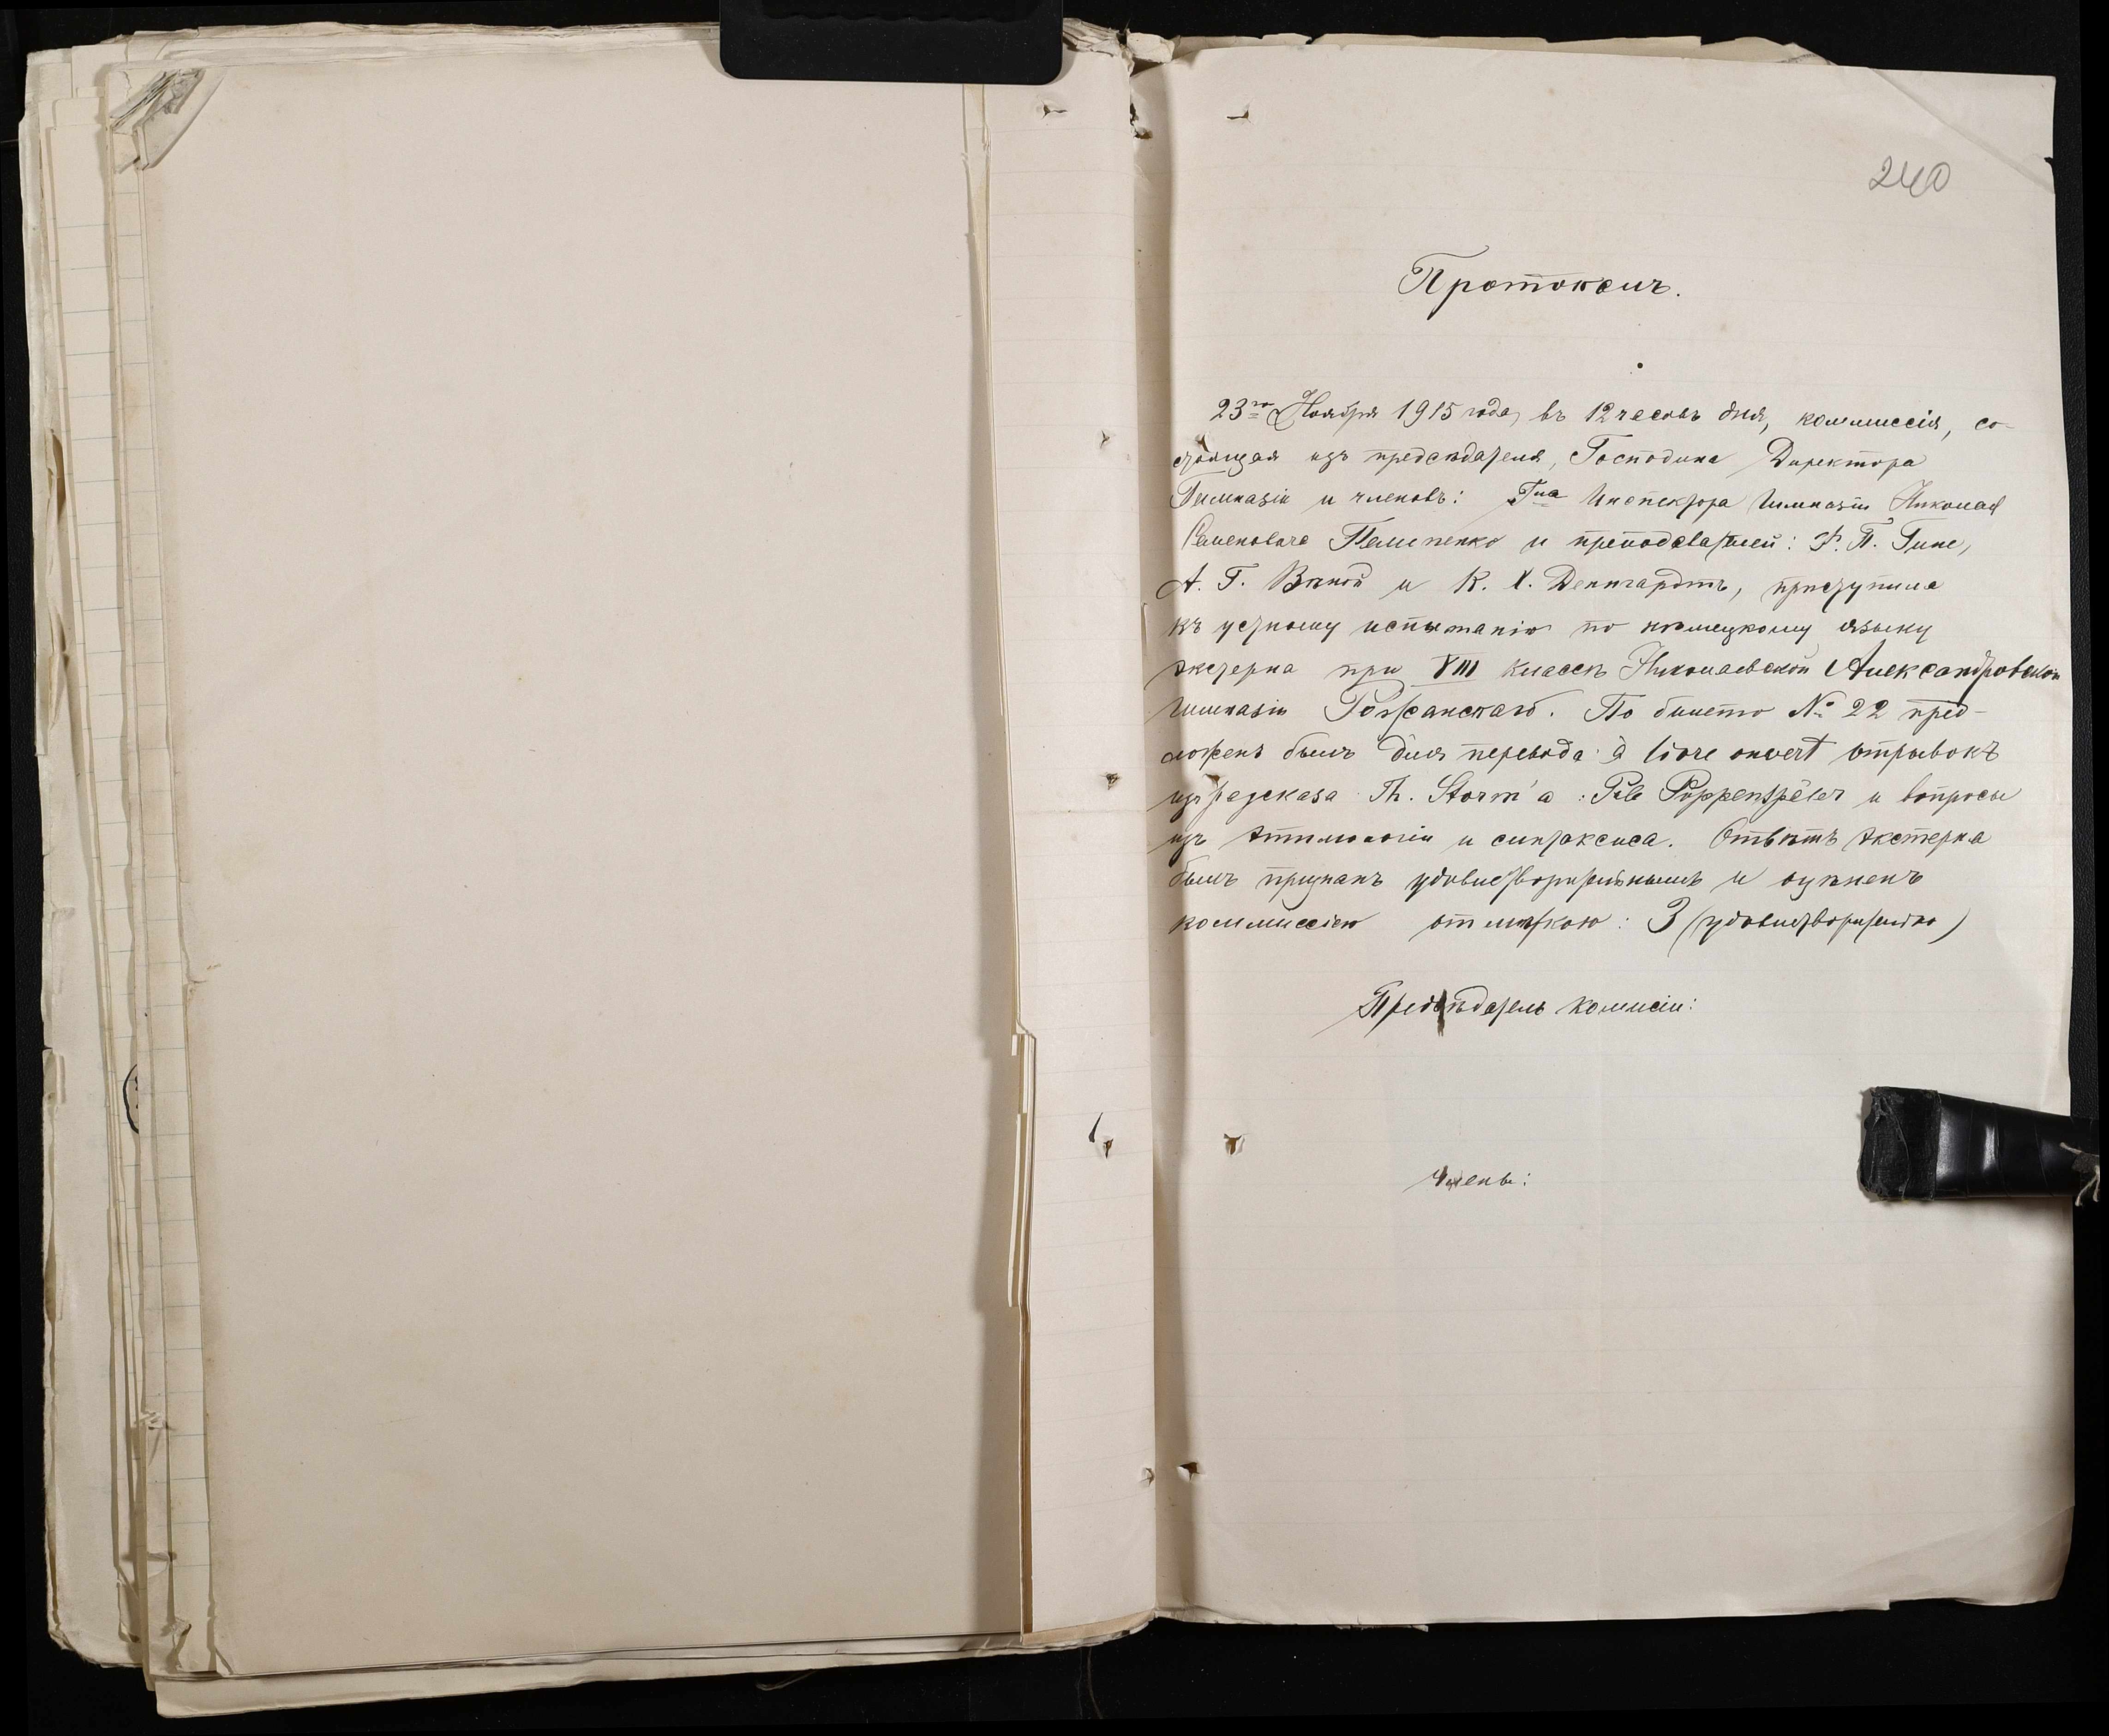 240
Протоколъ.
23го Ноября 1915 года, въ 12 часовъ дня, коммиссія, со-
стоящая изъ предсѣдателя, Господина Директора
Гимназіи и членовъ: Гна Инспектора Гимназіи Николая
Семеновича Пелипенко и преподавателей: Ф. П. Гине,
А. Г. и К. Х. Денгардтъ, приступила
къ устному испытанію по нѣмецкому языку
экстерна при VIII классѣ Николаевской Александровской
Гимназіи Рожанскаго. По билету № 22 пред-
ложенъ былъ для перевода à livre ouvert отрывокъ
изъ разсказа Th. Storm'а: Pole Poppenspäler и вопросы
изъ этимологіи и синтаксиса. Отвѣтъ экстерна
былъ признанъ удовлетворительнымъ и оцѣненъ
коммиссіею отмѣткою: 3 (удовлетворительно)
Предсѣдатель комисіи:
Члены: